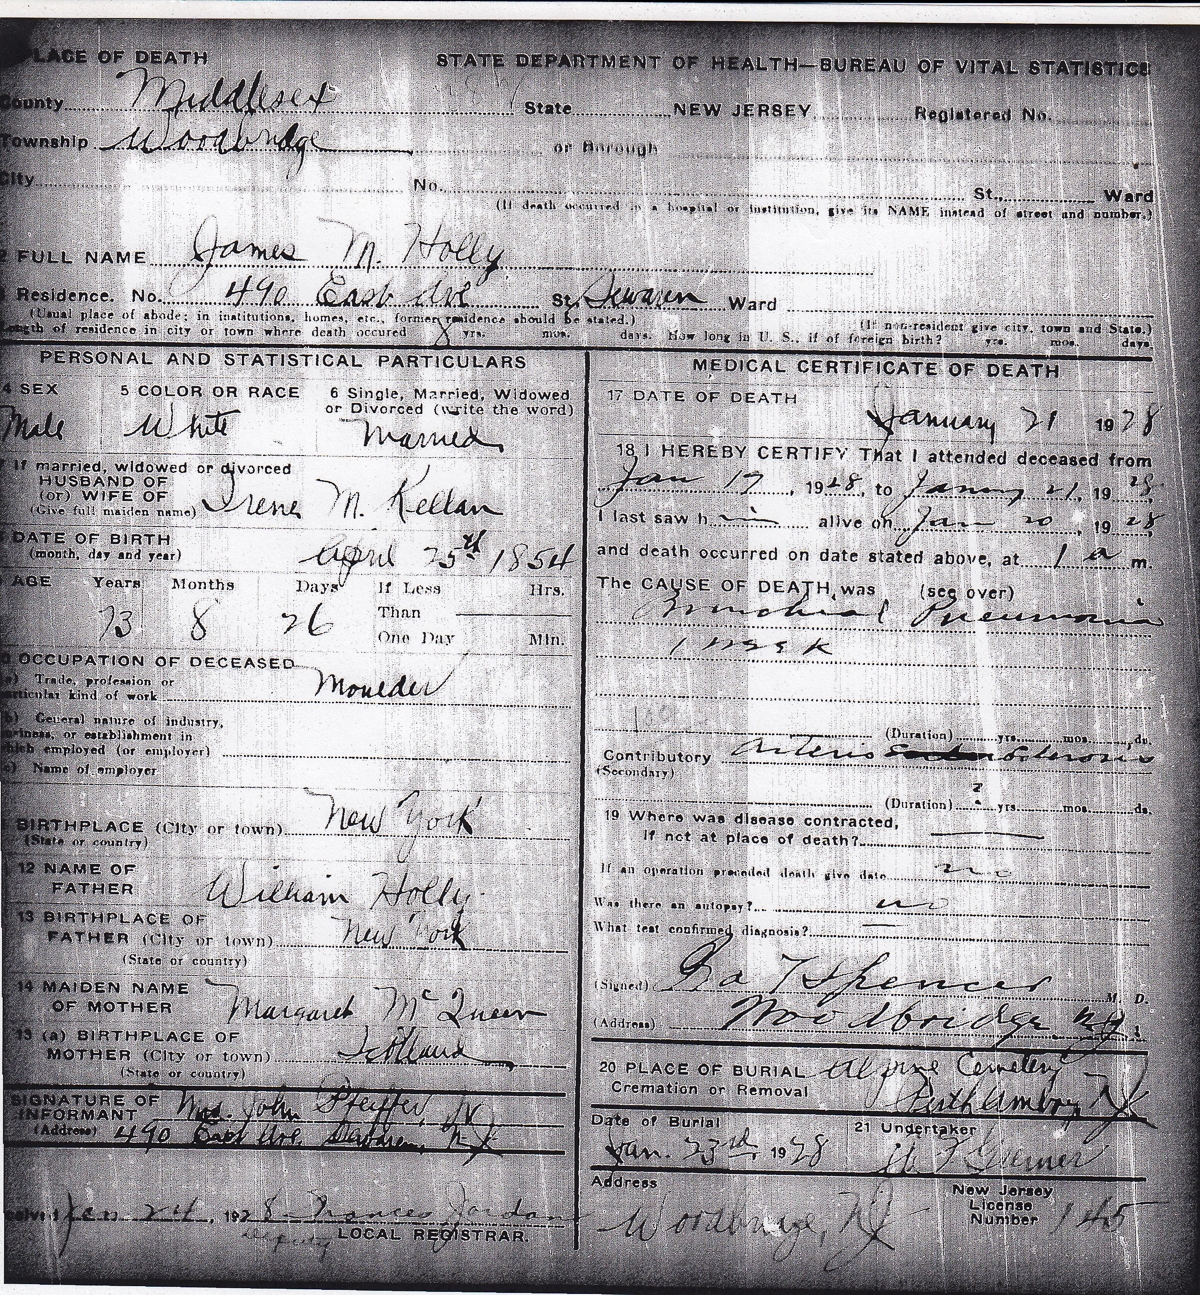 PLACE OF DEATH
STATE DEPARTMENT OF HEALTH—BUREAU OF VITAL STATISTICS
County Middlesex State NEW JERSEY Registered No.
Township Woodbridge or Borough
City No. St., Ward
(If death occurred in a hospital or institution, give its NAME instead of street and number.)
2 FULL NAME James M. Holly
Residence. No. 490 East Ave St. Sewaren Ward
(Usual place of abode; in institutions, homes, etc., former residence should be stated.) (If non-resident give city, town and State.)
Length of residence in city or town where death occured 8 yrs. mos. days. How long in U. S., if of foreign birth? yrs. mos. days
PERSONAL AND STATISTICAL PARTICULARS
4 SEX 5 COLOR OR RACE 6 Single, Married, Widowed
or Divorced (write the word)
Male White Married
If married, widowed or divorced
HUSBAND OF
(or) WIFE OF Irene M. Kellan
(Give full maiden name)
DATE OF BIRTH
(month, day and year) April 25th 1854
AGE Years Months Days If Less Hrs.
Than
73 8 26 One Day Min.
OCCUPATION OF DECEASED
Trade, profession or
particular kind of work Moulder
General nature of industry,
business, or establishment in
which employed (or employer)
Name of employer
BIRTHPLACE (City or town) New York
(State or country)
12 NAME OF
FATHER William Holly
13 BIRTHPLACE OF
FATHER (City or town) New York
(State or country)
14 MAIDEN NAME
OF MOTHER Margaret McQueen
13 (a) BIRTHPLACE OF
MOTHER (City or town) Scotland
(State or country)
SIGNATURE OF
INFORMANT Mrs. John Pfeiffer
(Address) 490 East Ave. Sewaren, NJ
Jan 24, 1928 Frances Jordan
Deputy LOCAL REGISTRAR.
MEDICAL CERTIFICATE OF DEATH
17 DATE OF DEATH
January 21 1928
18 I HEREBY CERTIFY That I attended deceased from
Jan 17, 1928, to 21, 1928,
I last saw him alive on Jan 20, 1928,
and death occurred on date stated above, at 1 a m.
The CAUSE OF DEATH was (see over)
Bronchial Pneumonia
1 week
(Duration) yrs. mos. ds.
Contributory Arterio Sclerosis
(Secondary)
(Duration) ? yrs. mos. ds.
19 Where was disease contracted,
if not at place of death?
If an operation preceded death give date no
Was there an autopsy? no
What test confirmed diagnosis?
(Signed) Spencer M. D.
(Address) Woodbridge NJ
20 PLACE OF BURIAL Alpine Cemetery
Cremation or Removal Perth Amboy NJ
Date of Burial 21 Undertaker
Jan. 23rd, 1928
Address New Jersey
License
Woodbridge, NJ Number 145